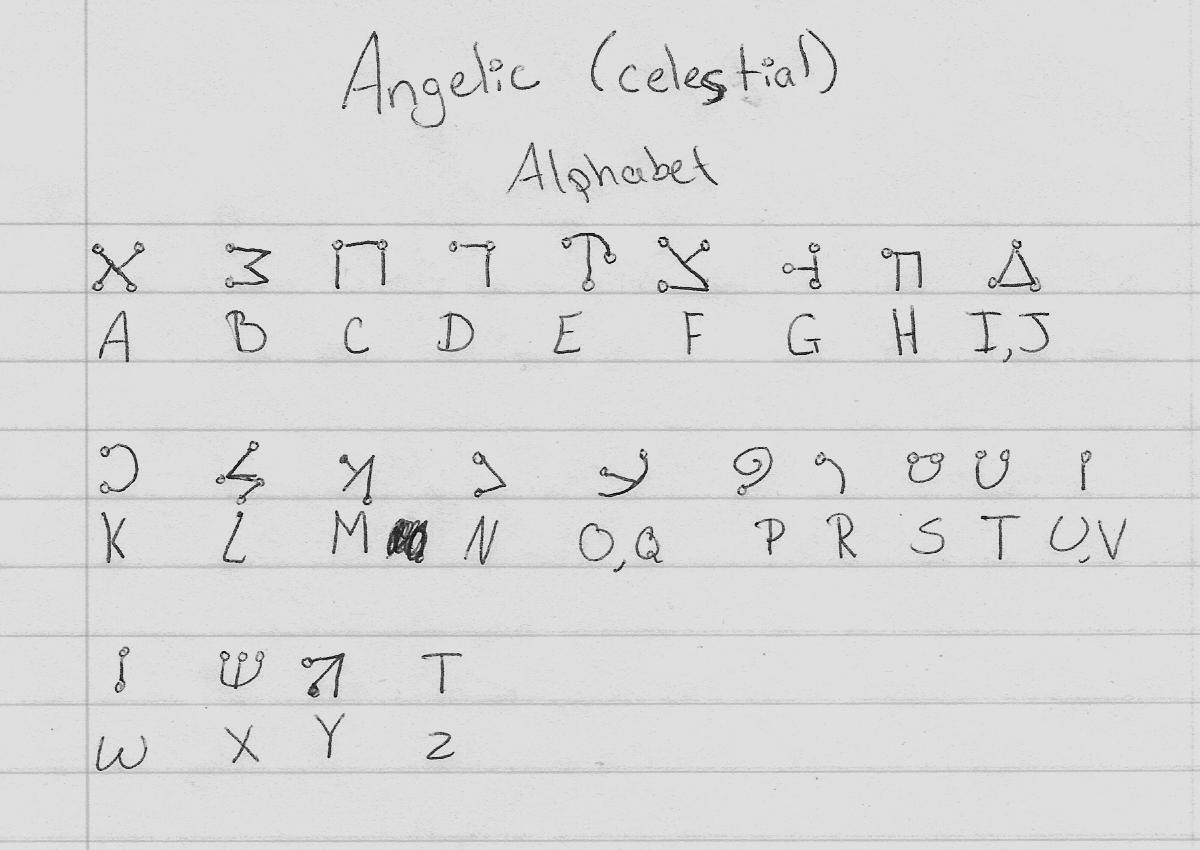 Angelic (celestial)
Alphabet
A B C D E F G H I,J
K L M N O,Q P R S T U,V
W X Y Z